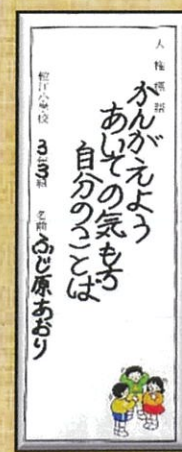 人権標語
かんがえよう
あいての気もち
自分のことば
松江小学校 3年3組 名前 ふじ原あおり